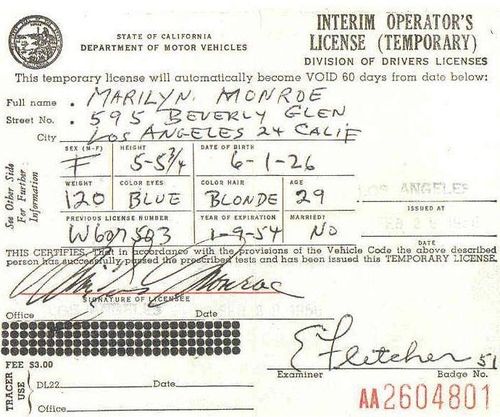 STATE OF CALIFORNIA
DEPARTMENT OF MOTOR VEHICLES
INTERIM OPERATOR'S
LICENSE (TEMPORARY)
DIVISION OF DRIVERS LICENSES
This temporary license will automatically become VOID 60 days from date below:
Full name MARILYN MONROE
Street No. 595 BEVERLY GLEN
City LOS ANGELES 24 CALIF
See Other Side For Further Information
SEX (M-F) HEIGHT DATE OF BIRTH
F 5-5 3/4 6-1-26
WEIGHT COLOR EYES COLOR HAIR AGE
120 BLUE BLONDE 29
LOS ANGELES
ISSUED AT
PREVIOUS LICENSE NUMBER YEAR OF EXPIRATION MARRIED?
W607503 1-9-54 NO
DATE
THIS CERTIFIES, That in accordance with the provisions of the Vehicle Code the above described
person has successfully passed the prescribed tests and has been issued this TEMPORARY LICENSE.
Marilyn Monroe
SIGNATURE OF LICENSEE
Office Date
E Fletcher 51
FEE $3.00
Examiner Badge No.
TRACER USE
DL22 Date
Office
AA2604801